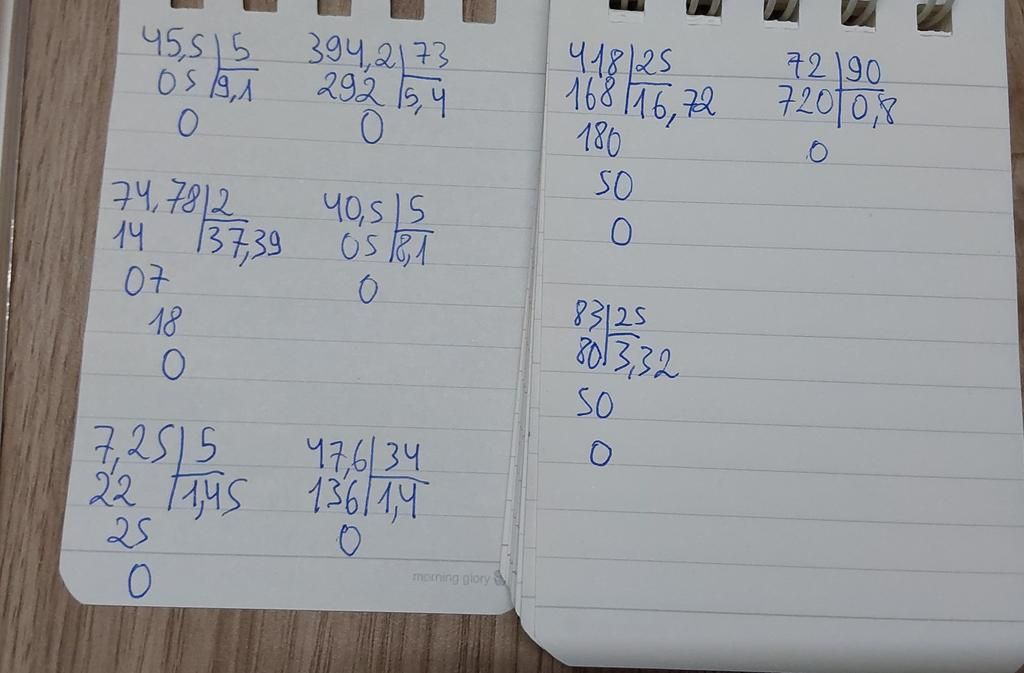 45,5 5
05 9,1
0
394,2 73
292 5,4
0
74,78 2
14 37,39
07
18
0
40,5 5
05 8,1
0
7,25 5
22 1,45
25
0
47,6 34
136 1,4
0
morning glory
418 25
168 16,72
180
50
0
72 90
720 0,8
0
83 25
80 3,32
50
0